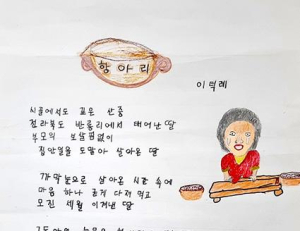 항아리
이덕례
시골에서도 깊은 산중
전라북도 반룡리에서 태어난 딸
부모의 보살핌없이
집안일을 도맡아 살아온 딸
까막눈으로 살아온 시간 속에
마음 하나 굳게 다져 먹고
모진 세월 이겨낸 딸